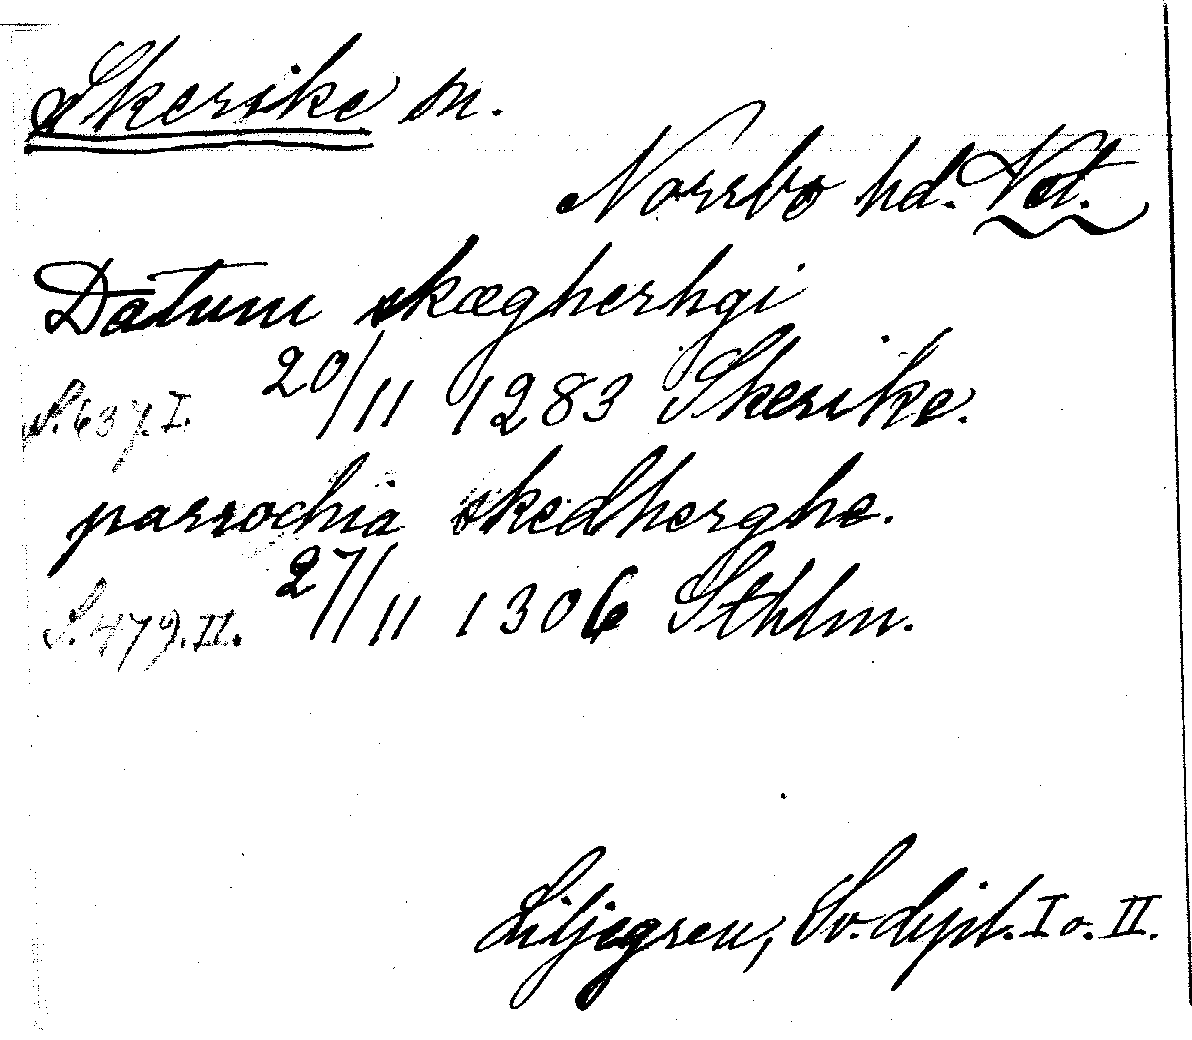 Skerike sn.
Norrbo hd. Vstl.
Datum skægherhgi
S. 637. I. 20/11 1283 Skerike.
parrochia skedherghe.
S. 479. II. 27/11 1306 Sthlm.
Liljegren, Sv. dipl. I o. II.